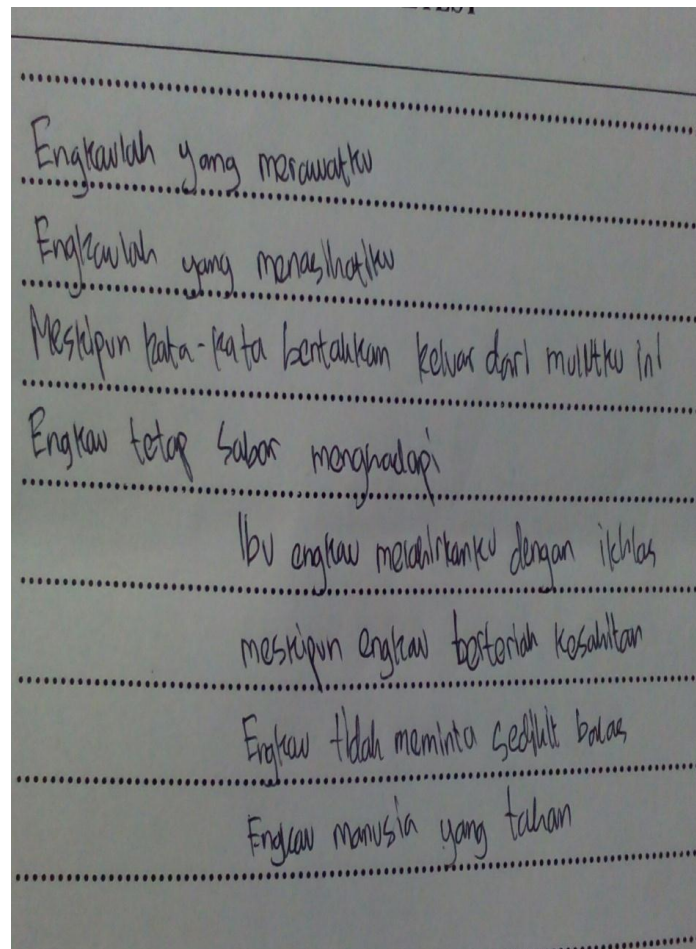 Engkaulah yang merawatku
Engkaulah yang menasihatiku
Meskipun kata-kata bentakkan keluar dari mulutku ini
Engkau tetap sabar menghadapi
Ibu engkau melahirkanku dengan ikhlas
meskipun engkau berteriak kesakitan
Engkau tidak meminta sedikit balas
Engkau manusia yang tahan